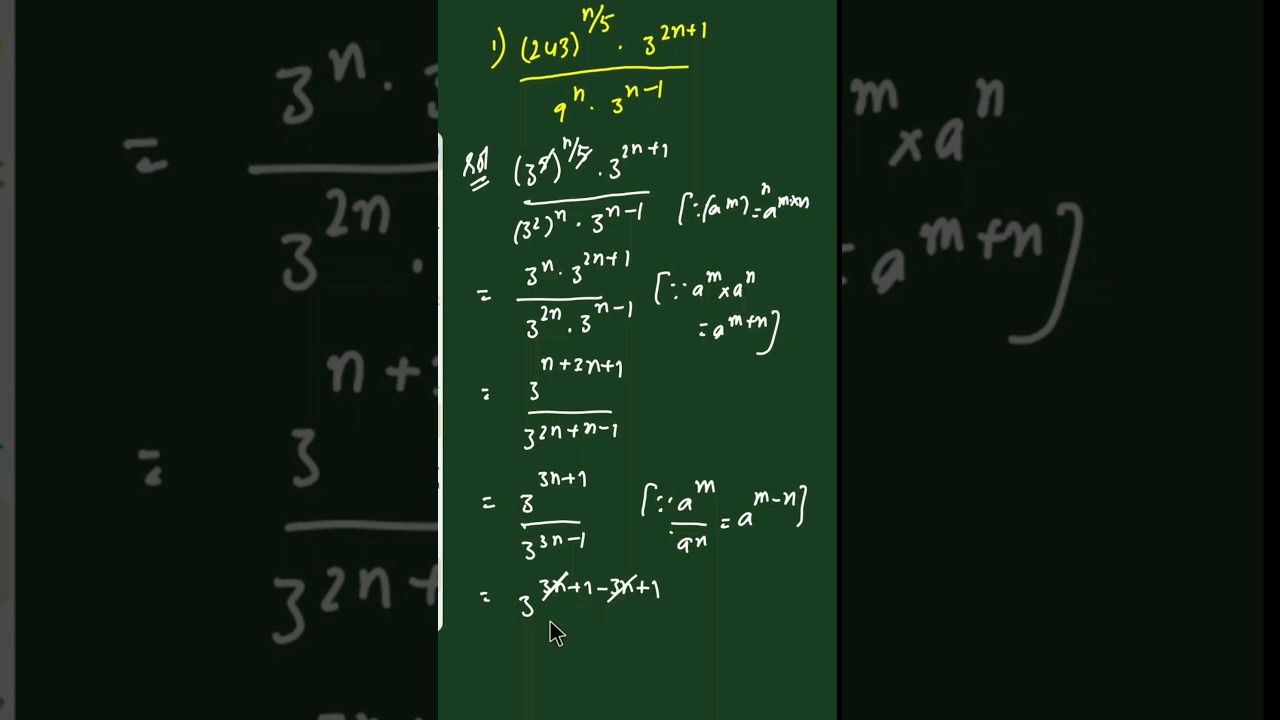 1) (243)^{n/5} · 3^{2n+1}
9^n · 3^{n-1}
Sol (3^5)^{n/5} · 3^{2n+1}
(3^2)^n · 3^{n-1} [∵(a^m)^n = a^{m×n}
= 3^n · 3^{2n+1} [∵ a^m × a^n
3^{2n} · 3^{n-1} = a^{m+n}]
= 3^{n+2n+1}
3^{2n+n-1}
= 3^{3n+1} [∵ a^m = a^{m-n}]
3^{3n-1} a^n
= 3^{3n+1-3n+1}